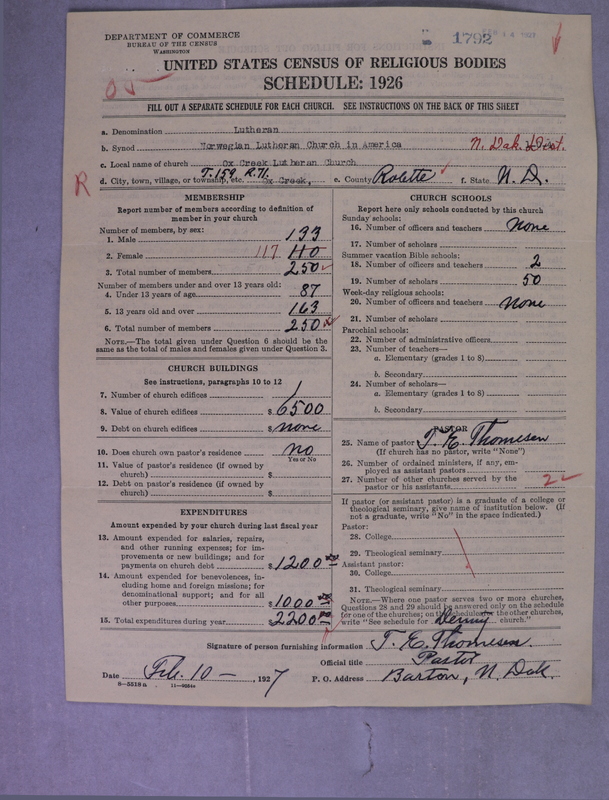 DEPARTMENT OF COMMERCE
BUREAU OF THE CENSUS
WASHINGTON
1792
UNITED STATES CENSUS OF RELIGIOUS BODIES
SCHEDULE: 1926
FILL OUT A SEPARATE SCHEDULE FOR EACH CHURCH. SEE INSTRUCTIONS ON THE BACK OF THIS SHEET
a. Denomination Lutheran
b. Synod Norwegian Lutheran Church in America N. Dak. Dist.
c. Local name of church Ox Creek Lutheran Church
T. 159 R. 71.
d. City, town, village, or township, etc. Ox Creek, e. County Rolette f. State N. D.
R
MEMBERSHIP
Report number of members according to definition of member in your church
Number of members, by sex:
1. Male 133
2. Female 117 110
3. Total number of members 250
Number of members under and over 13 years old:
4. Under 13 years of age 87
5. 13 years old and over 163
6. Total number of members 250
NOTE.—The total given under Question 6 should be the same as the total of males and females given under Question 3.
CHURCH BUILDINGS
See instructions, paragraphs 10 to 12
7. Number of church edifices 1
8. Value of church edifices $ 6500
9. Debt on church edifices $ none
10. Does church own pastor's residence no
Yes or No
11. Value of pastor's residence (if owned by church) $
12. Debt on pastor's residence (if owned by church) $
EXPENDITURES
Amount expended by your church during last fiscal year
13. Amount expended for salaries, repairs, and other running expenses; for improvements or new buildings; and for payments on church debt $ 1200 00
14. Amount expended for benevolences, including home and foreign missions; for denominational support; and for all other purposes $ 1000 00
15. Total expenditures during year $ 2200 00
CHURCH SCHOOLS
Report here only schools conducted by this church
Sunday schools:
16. Number of officers and teachers None
17. Number of scholars
Summer vacation Bible schools:
18. Number of officers and teachers 2
19. Number of scholars 50
Week-day religious schools:
20. Number of officers and teachers None
21. Number of scholars
Parochial schools:
22. Number of administrative officers
23. Number of teachers—
a. Elementary (grades 1 to 8)
b. Secondary
24. Number of scholars—
a. Elementary (grades 1 to 8)
b. Secondary
PASTOR
25. Name of pastor T. E. Thomesen
(If church has no pastor, write "None")
26. Number of ordained ministers, if any, employed as assistant pastors
27. Number of other churches served by the pastor or his assistants 2
If pastor (or assistant pastor) is a graduate of a college or theological seminary, give name of institution below. (If not a graduate, write "No" in the space indicated.)
Pastor:
28. College
29. Theological seminary
Assistant pastor:
30. College
31. Theological seminary
NOTE.—Where one pastor serves two or more churches, Questions 28 and 29 should be answered only on the schedule for one of the churches; on the schedules for the other churches, write "See schedule for Denny church."
Signature of person furnishing information T. E. Thomesen.
Official title Pastor
Date Feb. 10 — , 1927 P. O. Address Barton, N. Dak.
8—5518 a